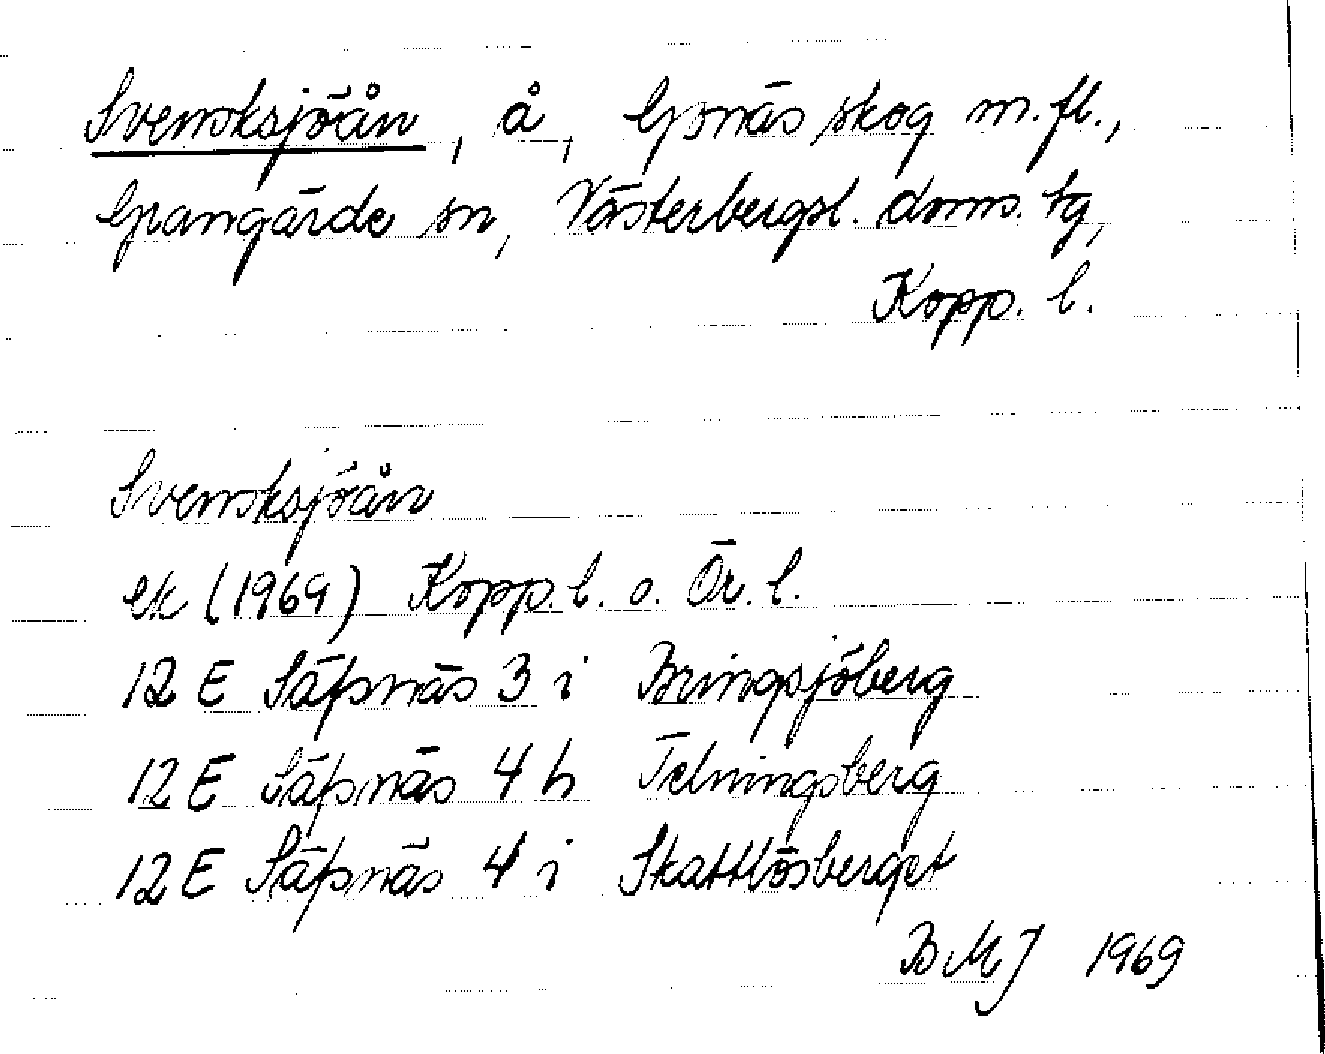 Svensksjöån, å, Gonäs skog m.fl.,
Grangärde sn, Västerbergsl. doms. tg,
Kopp. l.
Svensksjöån
ek (1969) Kopp. l. o. Ör. l.
12 E Säfsnäs 3 i Bringsjöberg
12 E Säfsnäs 4 h Telningsberg
12 E Säfsnäs 4 i Skattlösberget
BMJ 1969